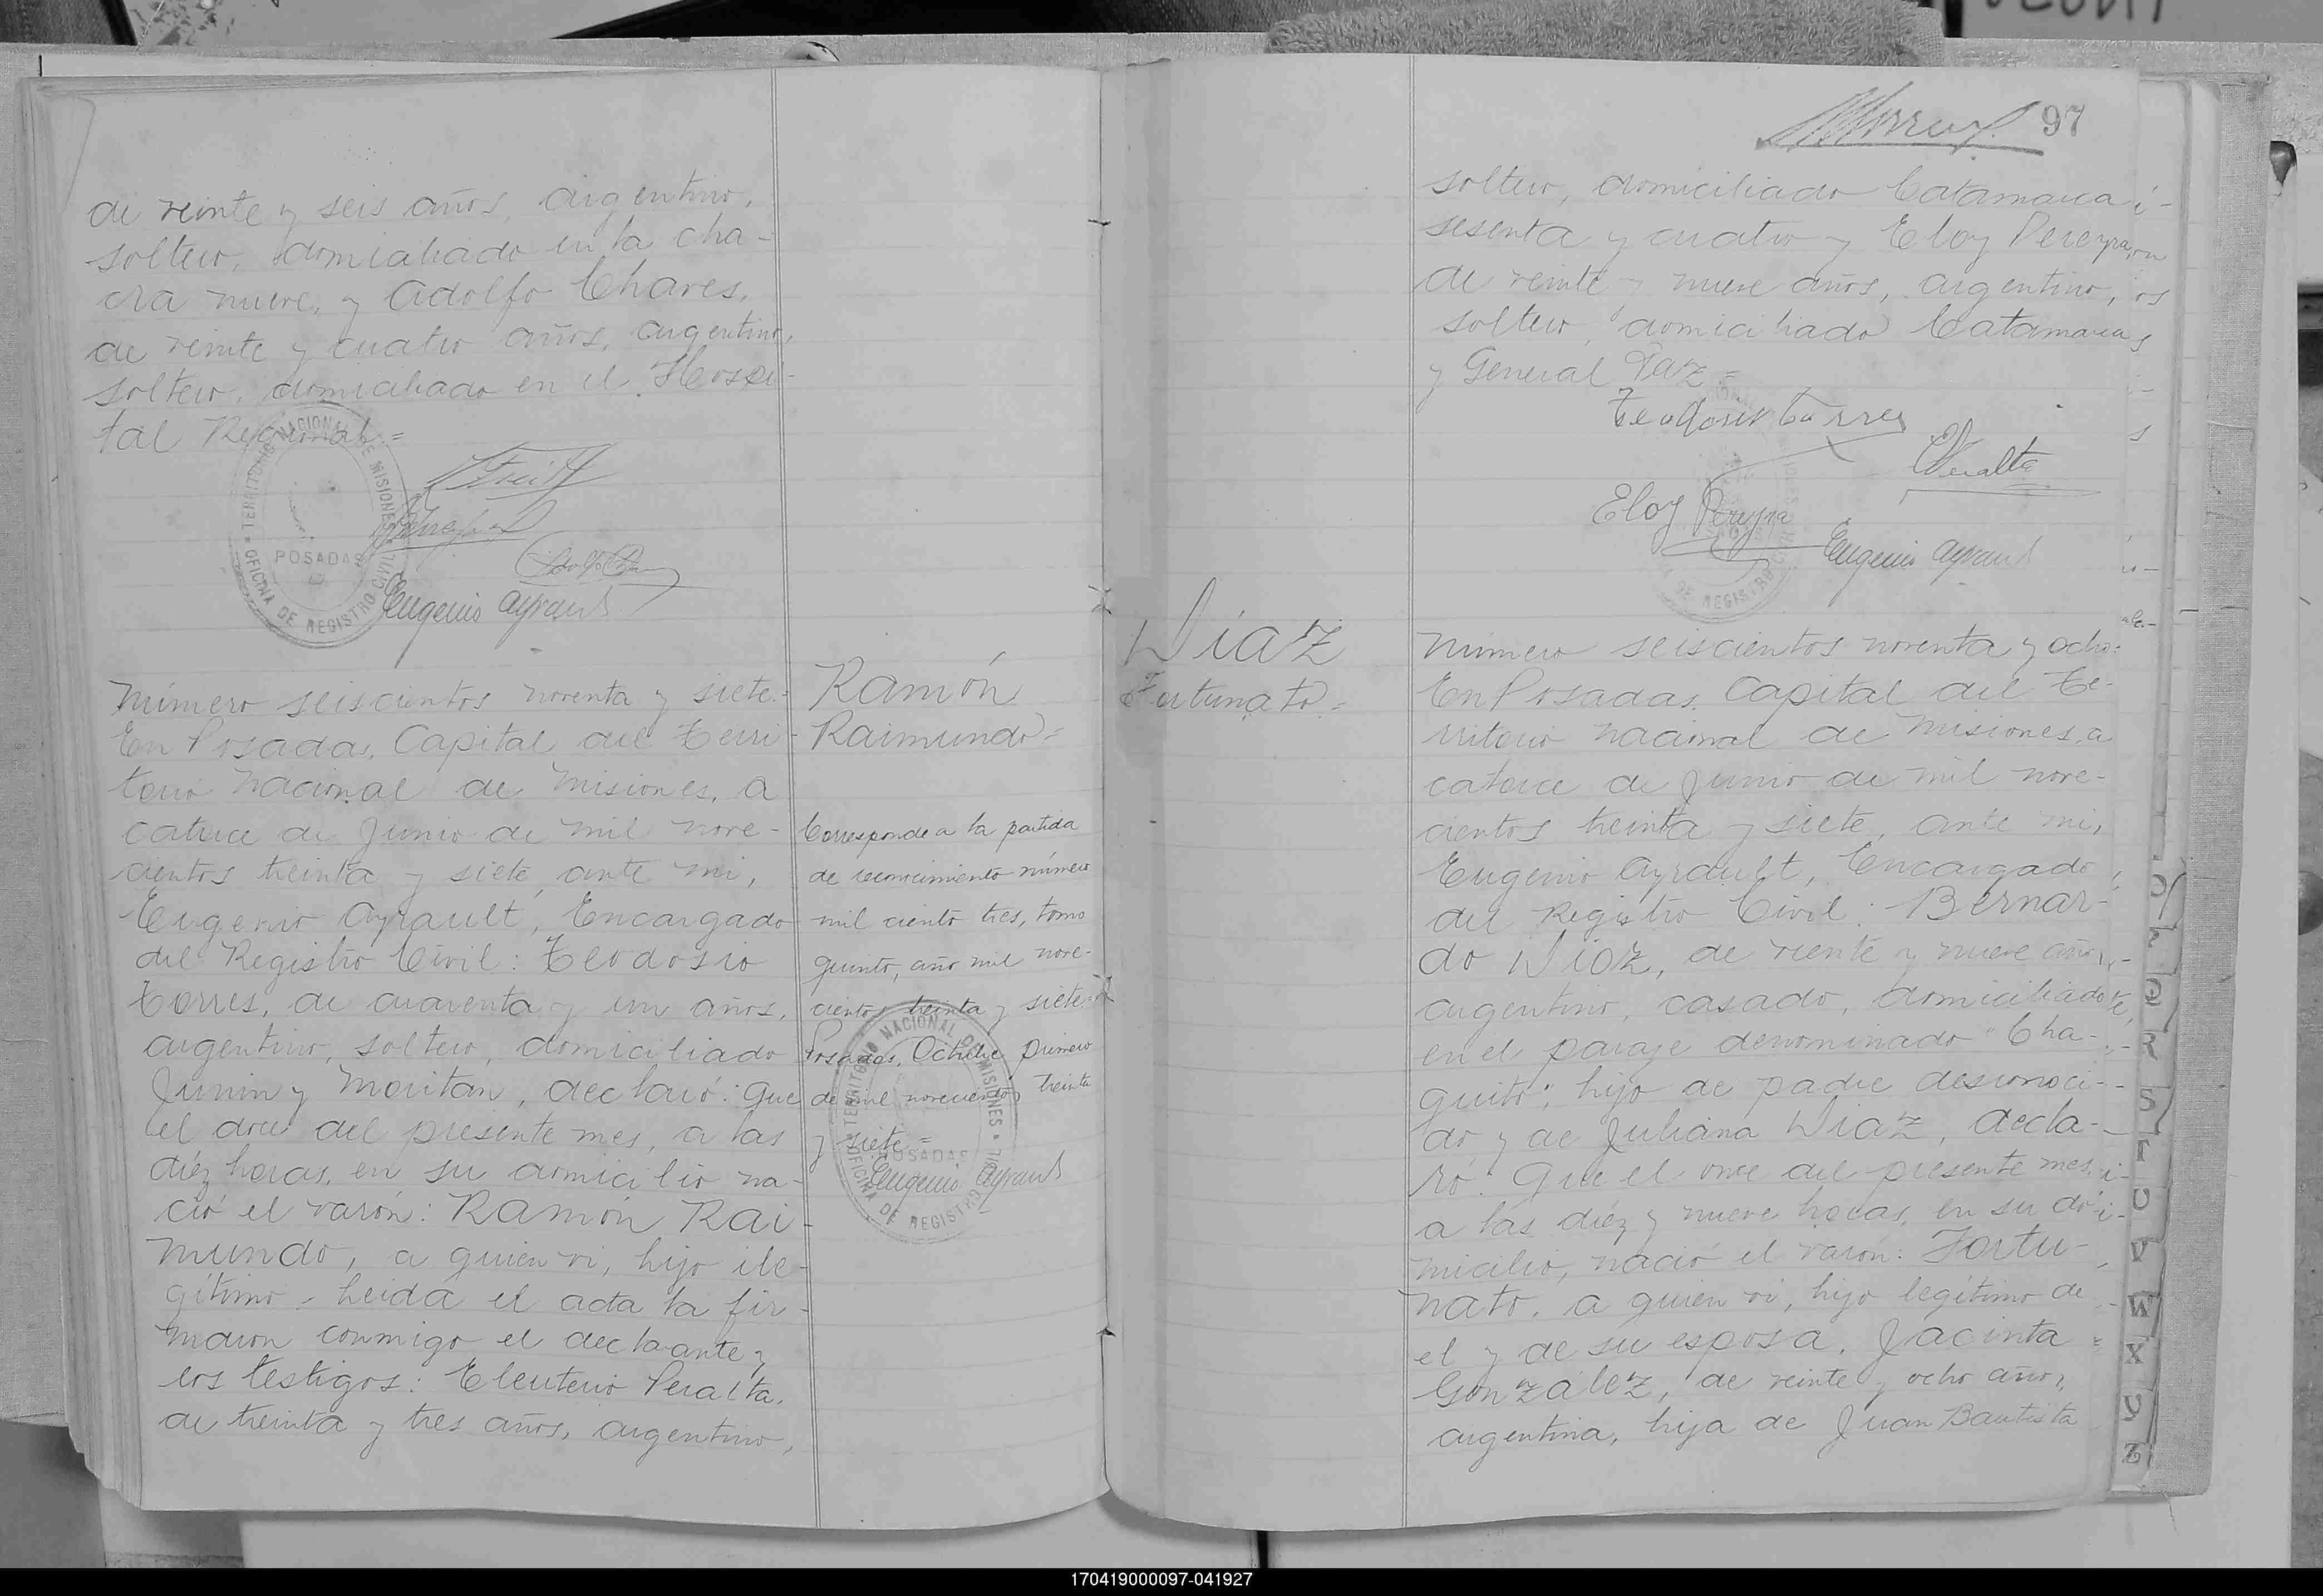 de veinte y seis años, argentino,
soltero, domiciliado en la cha-
cra nueve, y Adolfo Chaves,
de veinte y cuatro años, argentino,
soltero, domiciliado en el Hospi-
tal Regional.=
TERRITORIO NACIONAL DE MISIONES
POSADAS
OFICINA DE REGISTRO CIVIL
Eugenio Ayrault
Número seiscientos noventa y siete.=
En Posadas, Capital del Terri-
torio Nacional de Misiones, a
catorce de Junio de mil nove-
cientos treinta y siete, ante mi,
Eugenio Ayrault, Encargado
del Registro Civil: Teodosio
Torres, de cuarenta y un años,
argentino, soltero, domiciliado
Junin y Moritan, declaró: Que
el doce del presente mes, a las
diéz horas, en su domicilio na-
ció el varón: Ramón Rai-
mundo, a quien vi, hijo ile-
gítimo.- Leida el acta la fir-
maron conmigo el declarante y
los testigos: Eleuterio Peralta,
de treinta y tres años, argentino,
Ramón
Raimundo=
Corresponde a la partida
de reconocimiento número
mil ciento tres, tomo
quinto, año mil nove-
cientos treinta y siete.=
Posadas, Octubre primero
de mil novecientos treinta
y siete=
Eugenio Ayrault
TERRITORIO NACIONAL DE MISIONES
POSADAS
OFICINA DE REGISTRO CIVIL
97
soltero, domiciliado Catamarca
sesenta y cuatro y Eloy Pereyra,
de veinte y nueve años, argentino,
soltero, domiciliado Catamarca
y General Paz=
Teodosio Torres
Peralta
Eloy Pereyra
Eugenio Ayrault
DE REGISTRO
Díaz
Fortunato.=
Número seiscientos noventa y ocho:
En Posadas, Capital del Te-
rritorio Nacional de Misiones, a
catorce de Junio de mil nove-
cientos treinta y siete, ante mi,
Eugenio Ayrault, Encargado
del Registro Civil: Bernar-
do Diaz, de veinte y nueve años,
argentino, casado, domiciliado
en el paraje denominado "Cha-
quito", hijo de padre desconoci-
do y de Juliana Diaz, decla-
ró: Que el once del presente mes,
a las diéz y nueve horas, en su do-
micilio, nació el varón: Fortu-
nato, a quien vi, hijo legítimo de
el y de su esposa, Jacinta
González, de veinte y ocho años,
argentina, hija de Juan Bautista
Q
R
S
T
U
V
W
X
Y
Z
170419000097-041927